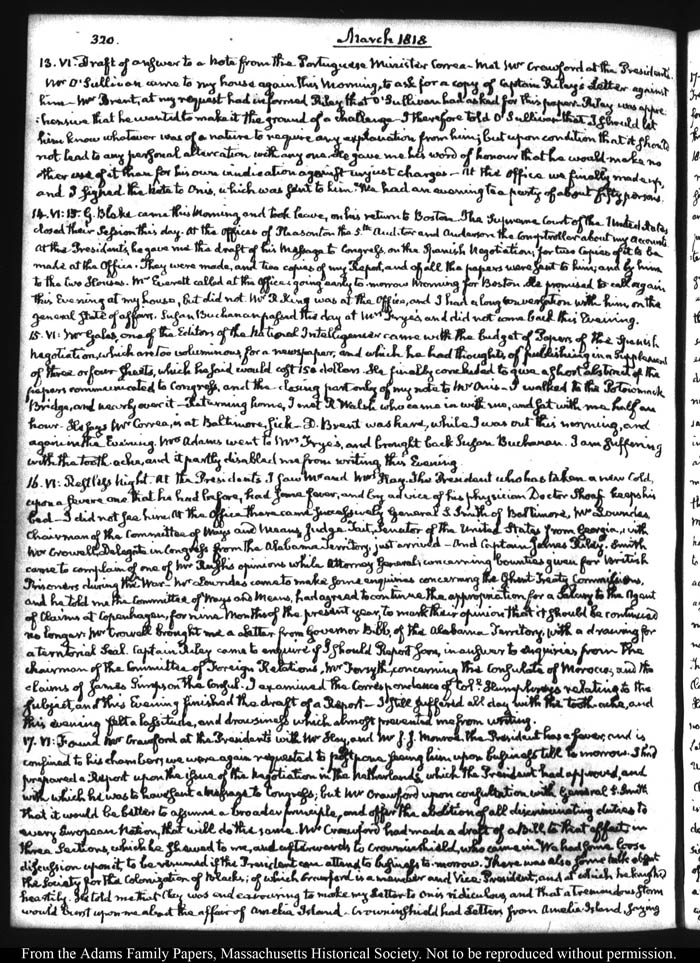 320.
March 1818
13. VI: Draft of answer to a Note from the Portuguese Minister Correa. Met Mr Crawford at the Presidents.
Mr O'Sullivan came to my house again this Morning, to ask for a copy of Captain Riley's Letter against
him. Mr Brent, at my request had informed Riley that O'Sullivan had asked for this paper. Riley was appre-
:hensive that he wanted to make it the ground of a challenge. I therefore told O'Sullivan that I should let
him know whatever was of a nature to require any explanation from him; but upon condition that it should
not lead to any personal altercation with any one. He gave me his word of honour that he would make no
other use of it than for his own vindication against unjust charges. At the Office we finally made up,
and I signed the Note to Onis, which was sent to him. We had an evening tea party of about fifty persons.
14. VI: 15. G. Blake came this Morning and took leave, on his return to Boston. The Supreme Court of the United States
closed their Session this day. At the Offices of Pleasonton the 5th. Auditor and Anderson the Comptroller about my Accounts.
At the Presidents, he gave me the draft of his Message to Congress, on the Spanish Negotiation, for two Copies of it to be
made at the Office. They were made, and two copies of my Report, and of all the papers were sent to him; and by him
to the two Houses. Mr Everett called at the Office; going early to-morrow Morning for Boston. He promised to call again
this Evening at my house, but did not. Mr R. King was at the Office, and I had a long conversation with him on the
general State of affairs. Susan Buchanan passed this day at Mrs Frye's and did not come back this Evening.
15. VI: Mr Gales, one of the Editors of the National Intelligencer came with the budget of Papers of the Spanish
Negotiation, which are too voluminous for a newspaper, and which he had thoughts of publishing in a Supplement
of three or four Sheets, which he said would cost 150 dollars. He finally concluded to give a short abstract of the
papers communicated to Congress, and the closing part only of my note to Mr Onis. I walked to the Potowmack
Bridge, and nearly over it. Returning home, I met R Walsh who came in with me, and sat with me half an
hour. He says Mr Correa, is at Baltimore, sick. D. Brent was here, while I was out this morning, and
again in the Evening. Mrs Adams went to Mrs Frye's, and brought back Susan Buchanan. I am suffering
with the tooth-ache, and it partly disabled me from writing this Evening.
16. VI: Restless Night. At the Presidents I saw Mr and Mrs Hay. The President who has taken a new Cold,
upon a severe one that he had before, had some fever, and by advice of his physician Doctor Thoaf keeps his
bed. I did not see him. At the Office there came successively General S. Smith of Baltimore, Mr Lowndes,
Chairman of the Committee of Ways and Means, Judge Tait, Senator of the United States from Georgia, with
Mr Crowell Delegate in Congress from the Alabama Territory, just arrived. And Captain James Riley. Smith
came to complain of one of Mr Rush's opinions while Attorney General, concerning bounties given for British
Prisoners during the War. Mr Lowndes came to make some enquiries concerning the Ghent Treaty Commissions,
and he told me the Committee of Ways and Means, had agreed to continue the appropriation for a Salary to the Agent
of Claims at Copenhagen, for nine Months of the present year, to mark their opinion that it should be continued
no longer. Mr Crowell brought me a Letter from Governor Bibb, of the Alabama Territory, with a drawing for
a territorial Seal. Captain Riley came to enquire if I should Report soon, in answer to enquiries from the
chairman of the Committee of Foreign Relations, Mr Forsyth, concerning the Consulate of Morocco, and the
claims of James Simpson the Consul. I examined the Correspondence of Coll. Humphreys relating to the
subject, and this Evening finished the draft of a Report. I still suffered all day with the tooth-ache, and
this evening felt a lassitude, and drowsiness which almost prevented me from writing.
17. VI: Found Mr Crawford at the Presidents with Mr Hay, and Mr J. J. Monroe. The President has a fever, and is
confined to his chamber; we were again requested to postpone seeing him upon business till to morrow. I had
prepared a Report upon the issue of the negotiation in the Netherlands, which the President had approved, and
with which he was to have sent a Message to Congress; but Mr Crawford upon consultation with General S. Smith
that it would be better to assume a broader principle, and offer the abolition of all discriminating duties to
every European Nation, that will do the same. Mr Crawford had made a draft of a Bill to that effect, in
three Sections, which he shewed to me, and afterwards to Crowninshield, who came in. We had some loose
discussion upon it, to be resumed if the President can attend to business to-morrow. There was also some talk about
the Society for the Colonization of Blacks; of which Crawford is a member and Vice President; and at which he laughed
heartily. He told me that Clay was endeavouring to make my Letter to Onis ridiculous, and that a tremendous storm
would burst upon me about the affair of Amelia Island. Crowninshield had Letters from Amelia Island, saying
From the Adams Family Papers, Massachusetts Historical Society. Not to be reproduced without permission.